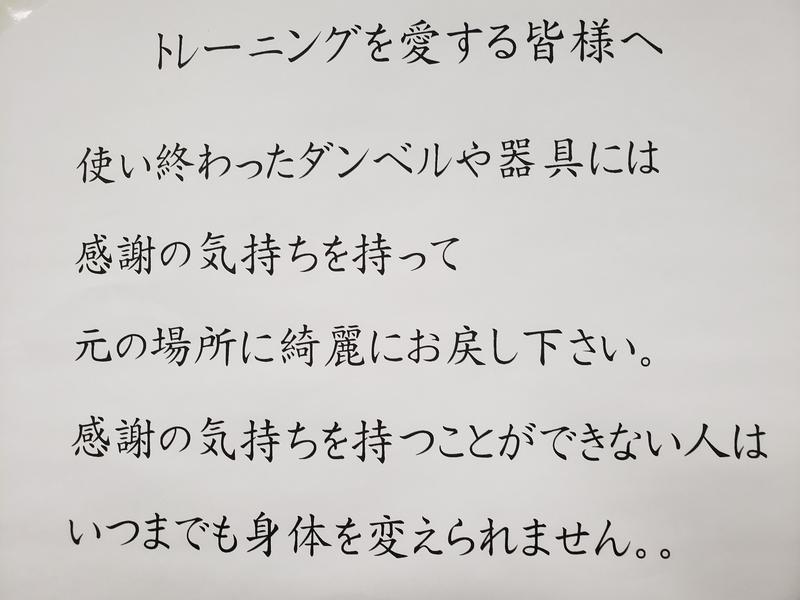 トレーニングを愛する皆様へ
使い終わったダンベルや器具には
感謝の気持ちを持って
元の場所に綺麗にお戻し下さい。
感謝の気持ちを持つことができない人は
いつまでも身体を変えられません。。